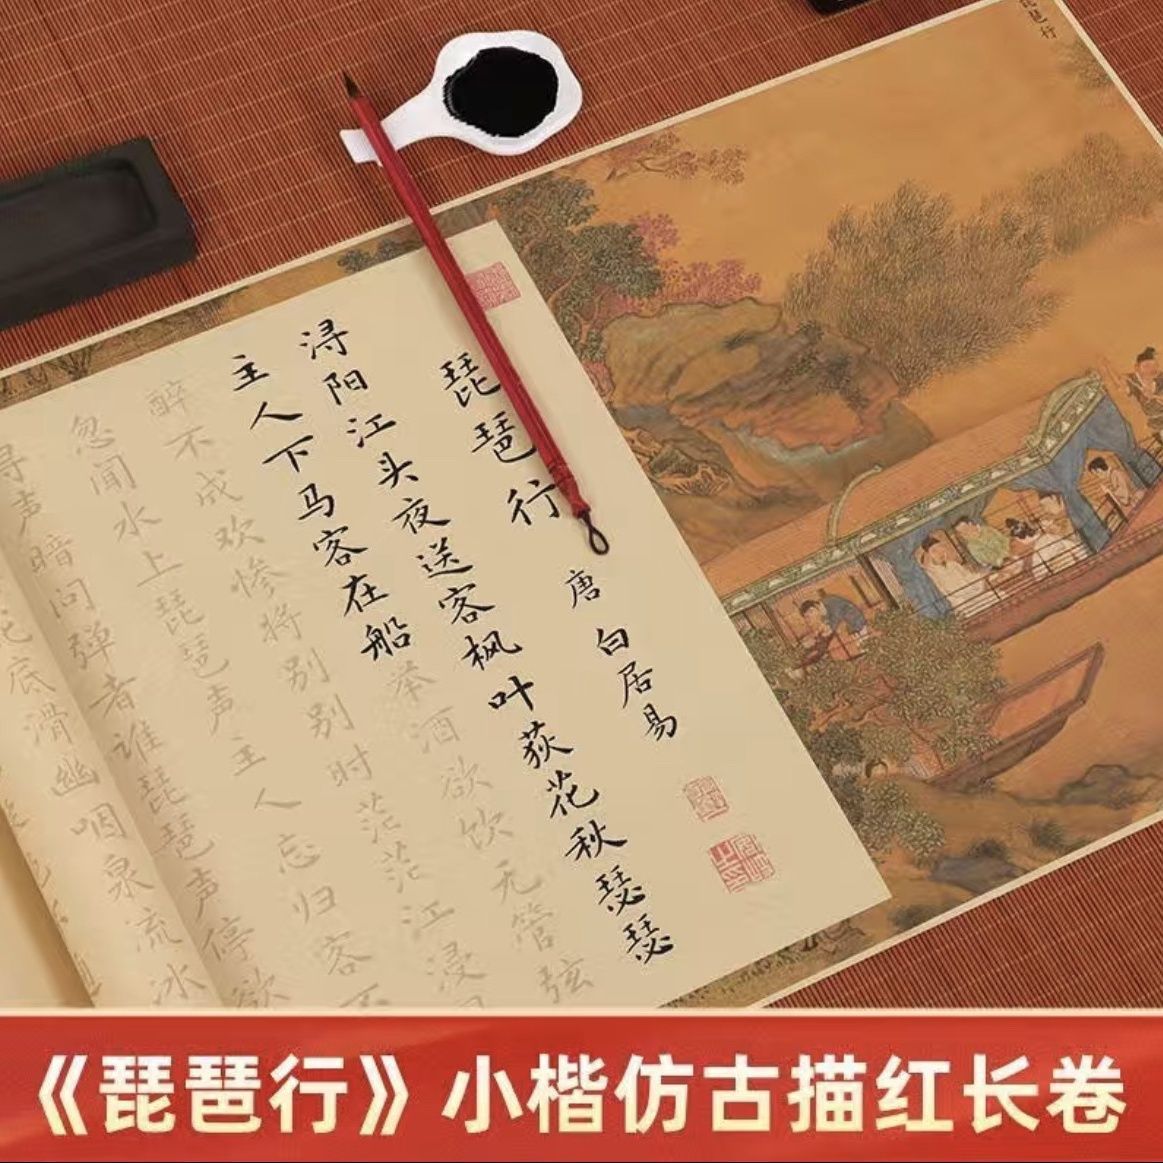 琵琶行
琵琶行
唐 白居易
浔阳江头夜送客枫叶荻花秋瑟瑟
主人下马客在船举酒欲饮无管弦
醉不成欢惨将别别时茫茫江浸
忽闻水上琵琶声主人忘归客不
寻声暗问弹者谁琵琶声停欲
花底滑幽咽泉流冰
《琵琶行》小楷仿古描红长卷